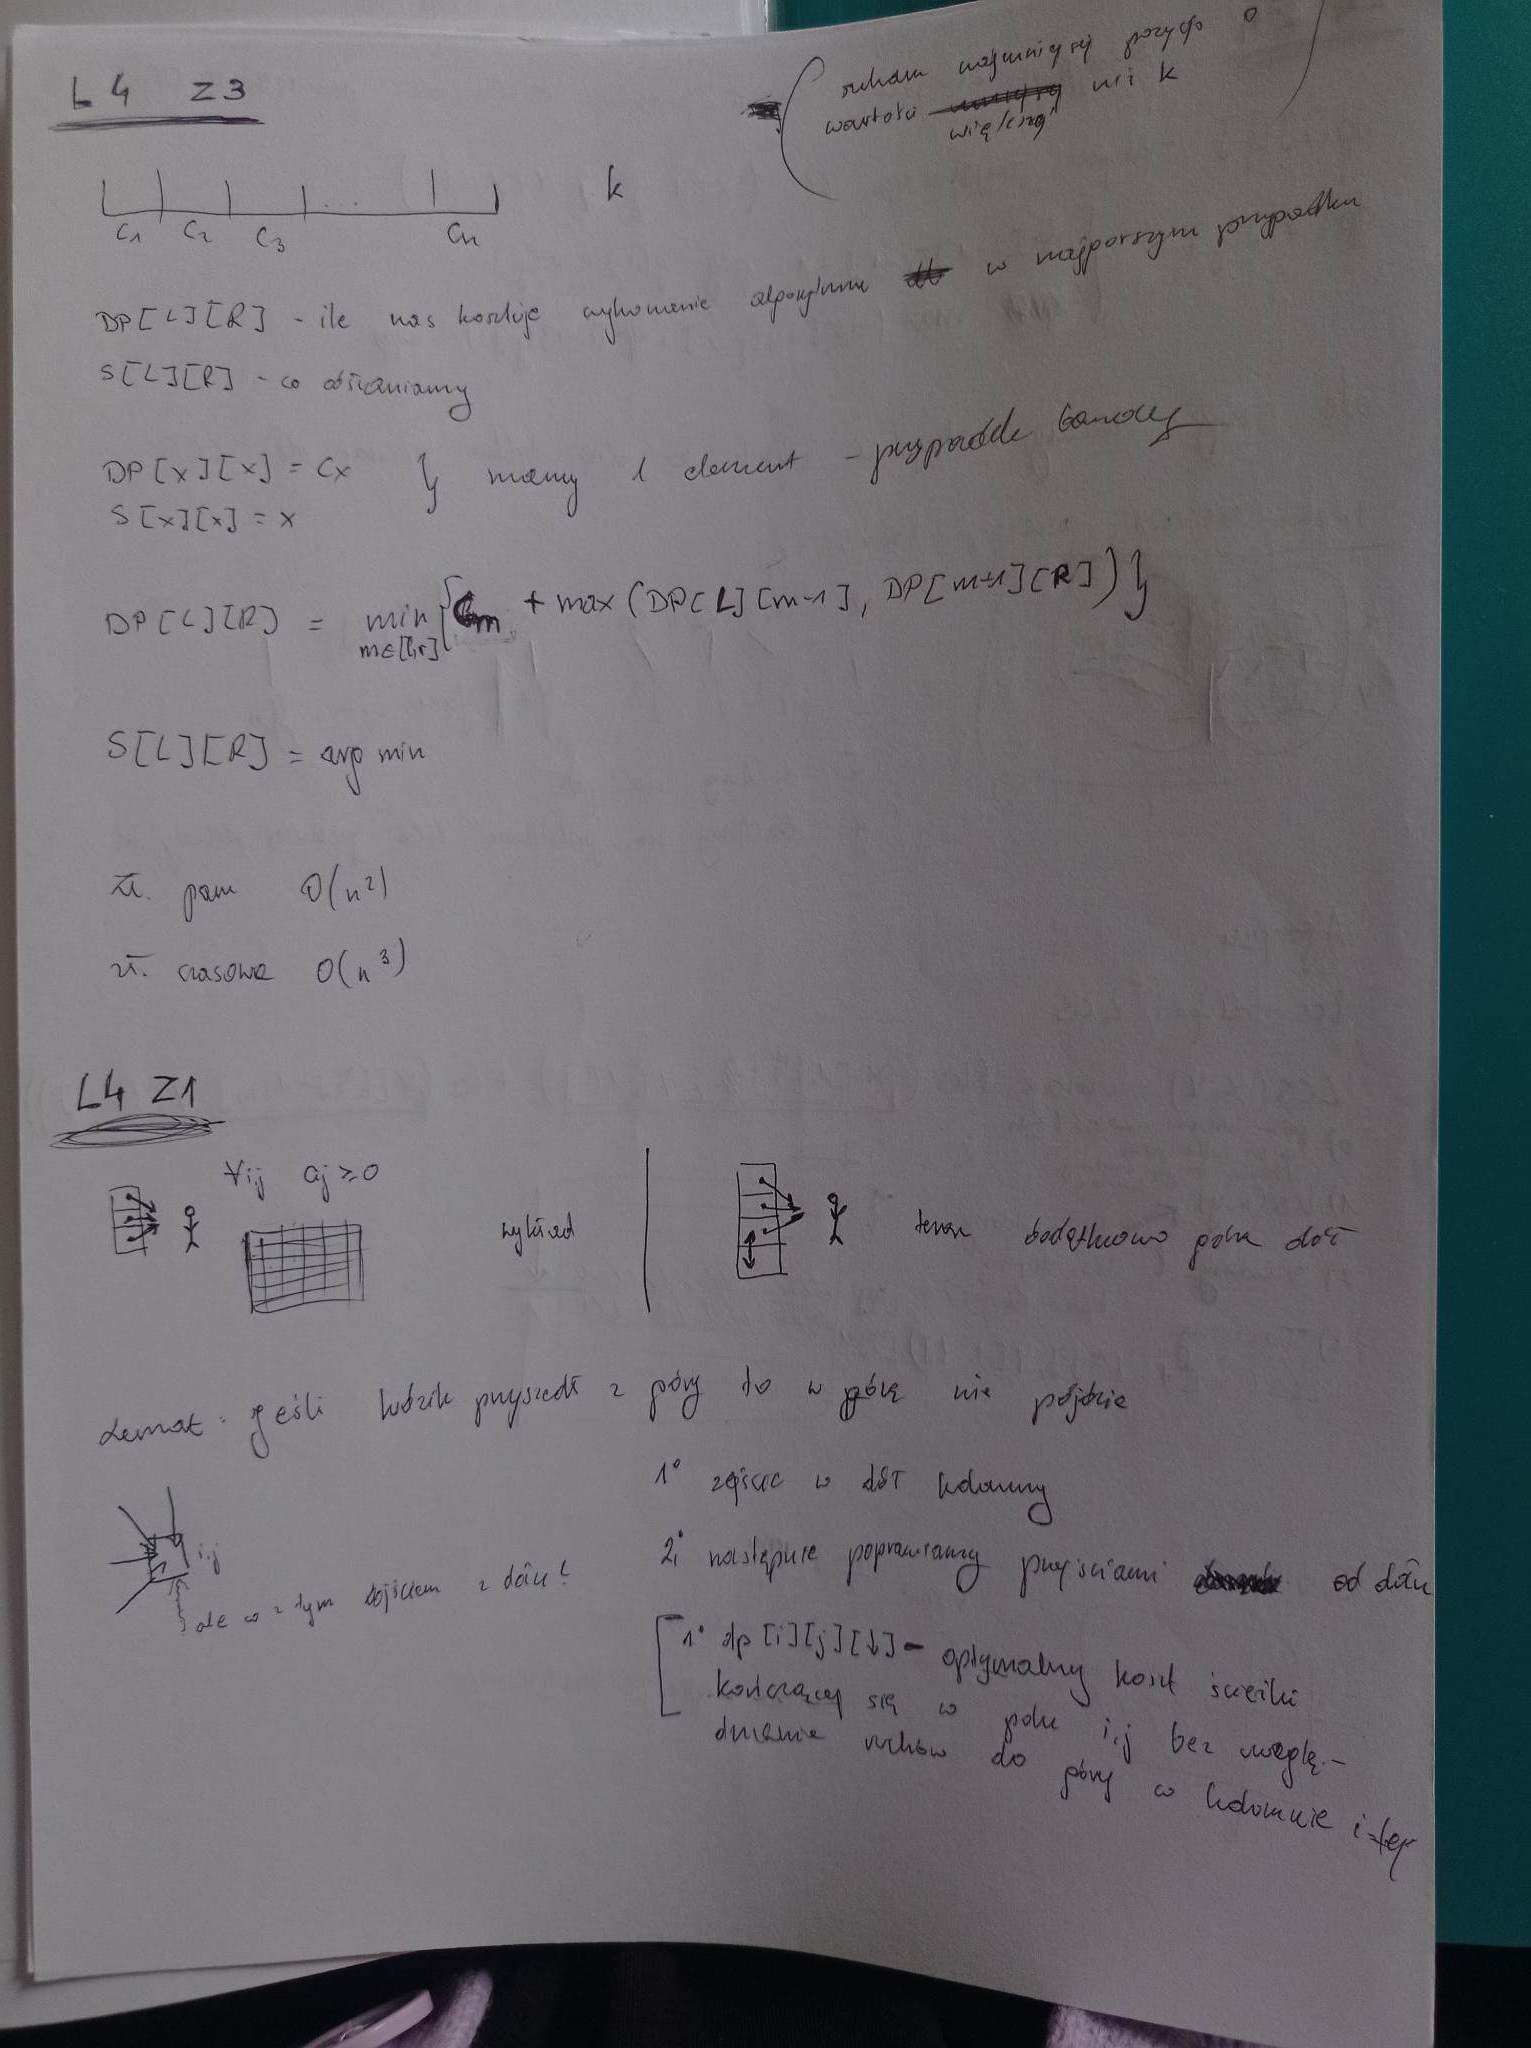 L4 Z3
szukam najmniejszej pozycji o
wartości większej niż k
k
c1 c2 c3 ... cn
DP[L][R] - ile nas kosztuje wykonanie algorytmu w najgorszym przypadku
S[L][R] - co odsłaniamy
DP[x][x] = Cx } mamy 1 element - przypadek bazowy
S[x][x] = x
DP[L][R] = min {Cm + max(DP[L][m-1], DP[m+1][R])}
m∈[l,r]
S[L][R] = arg min
zł. pam O(n²)
zł. czasowa O(n³)
L4 Z1
∀i,j aij ≥ 0
wykład
teraz dodatkowo góra dół
Lemat: Jeśli ludzik przyszedł z góry to w górę nie pójdzie
1° zejście w dół kolumny
2° następnie poprawiamy przejściami od dołu
i,j
ale co z tym dojściem z dołu?
1° dp[i][j][↓] - optymalny koszt ścieżki
kończącej się w polu i,j bez uwzglę-
dnienia ruchów do góry w kolumnie i-tej